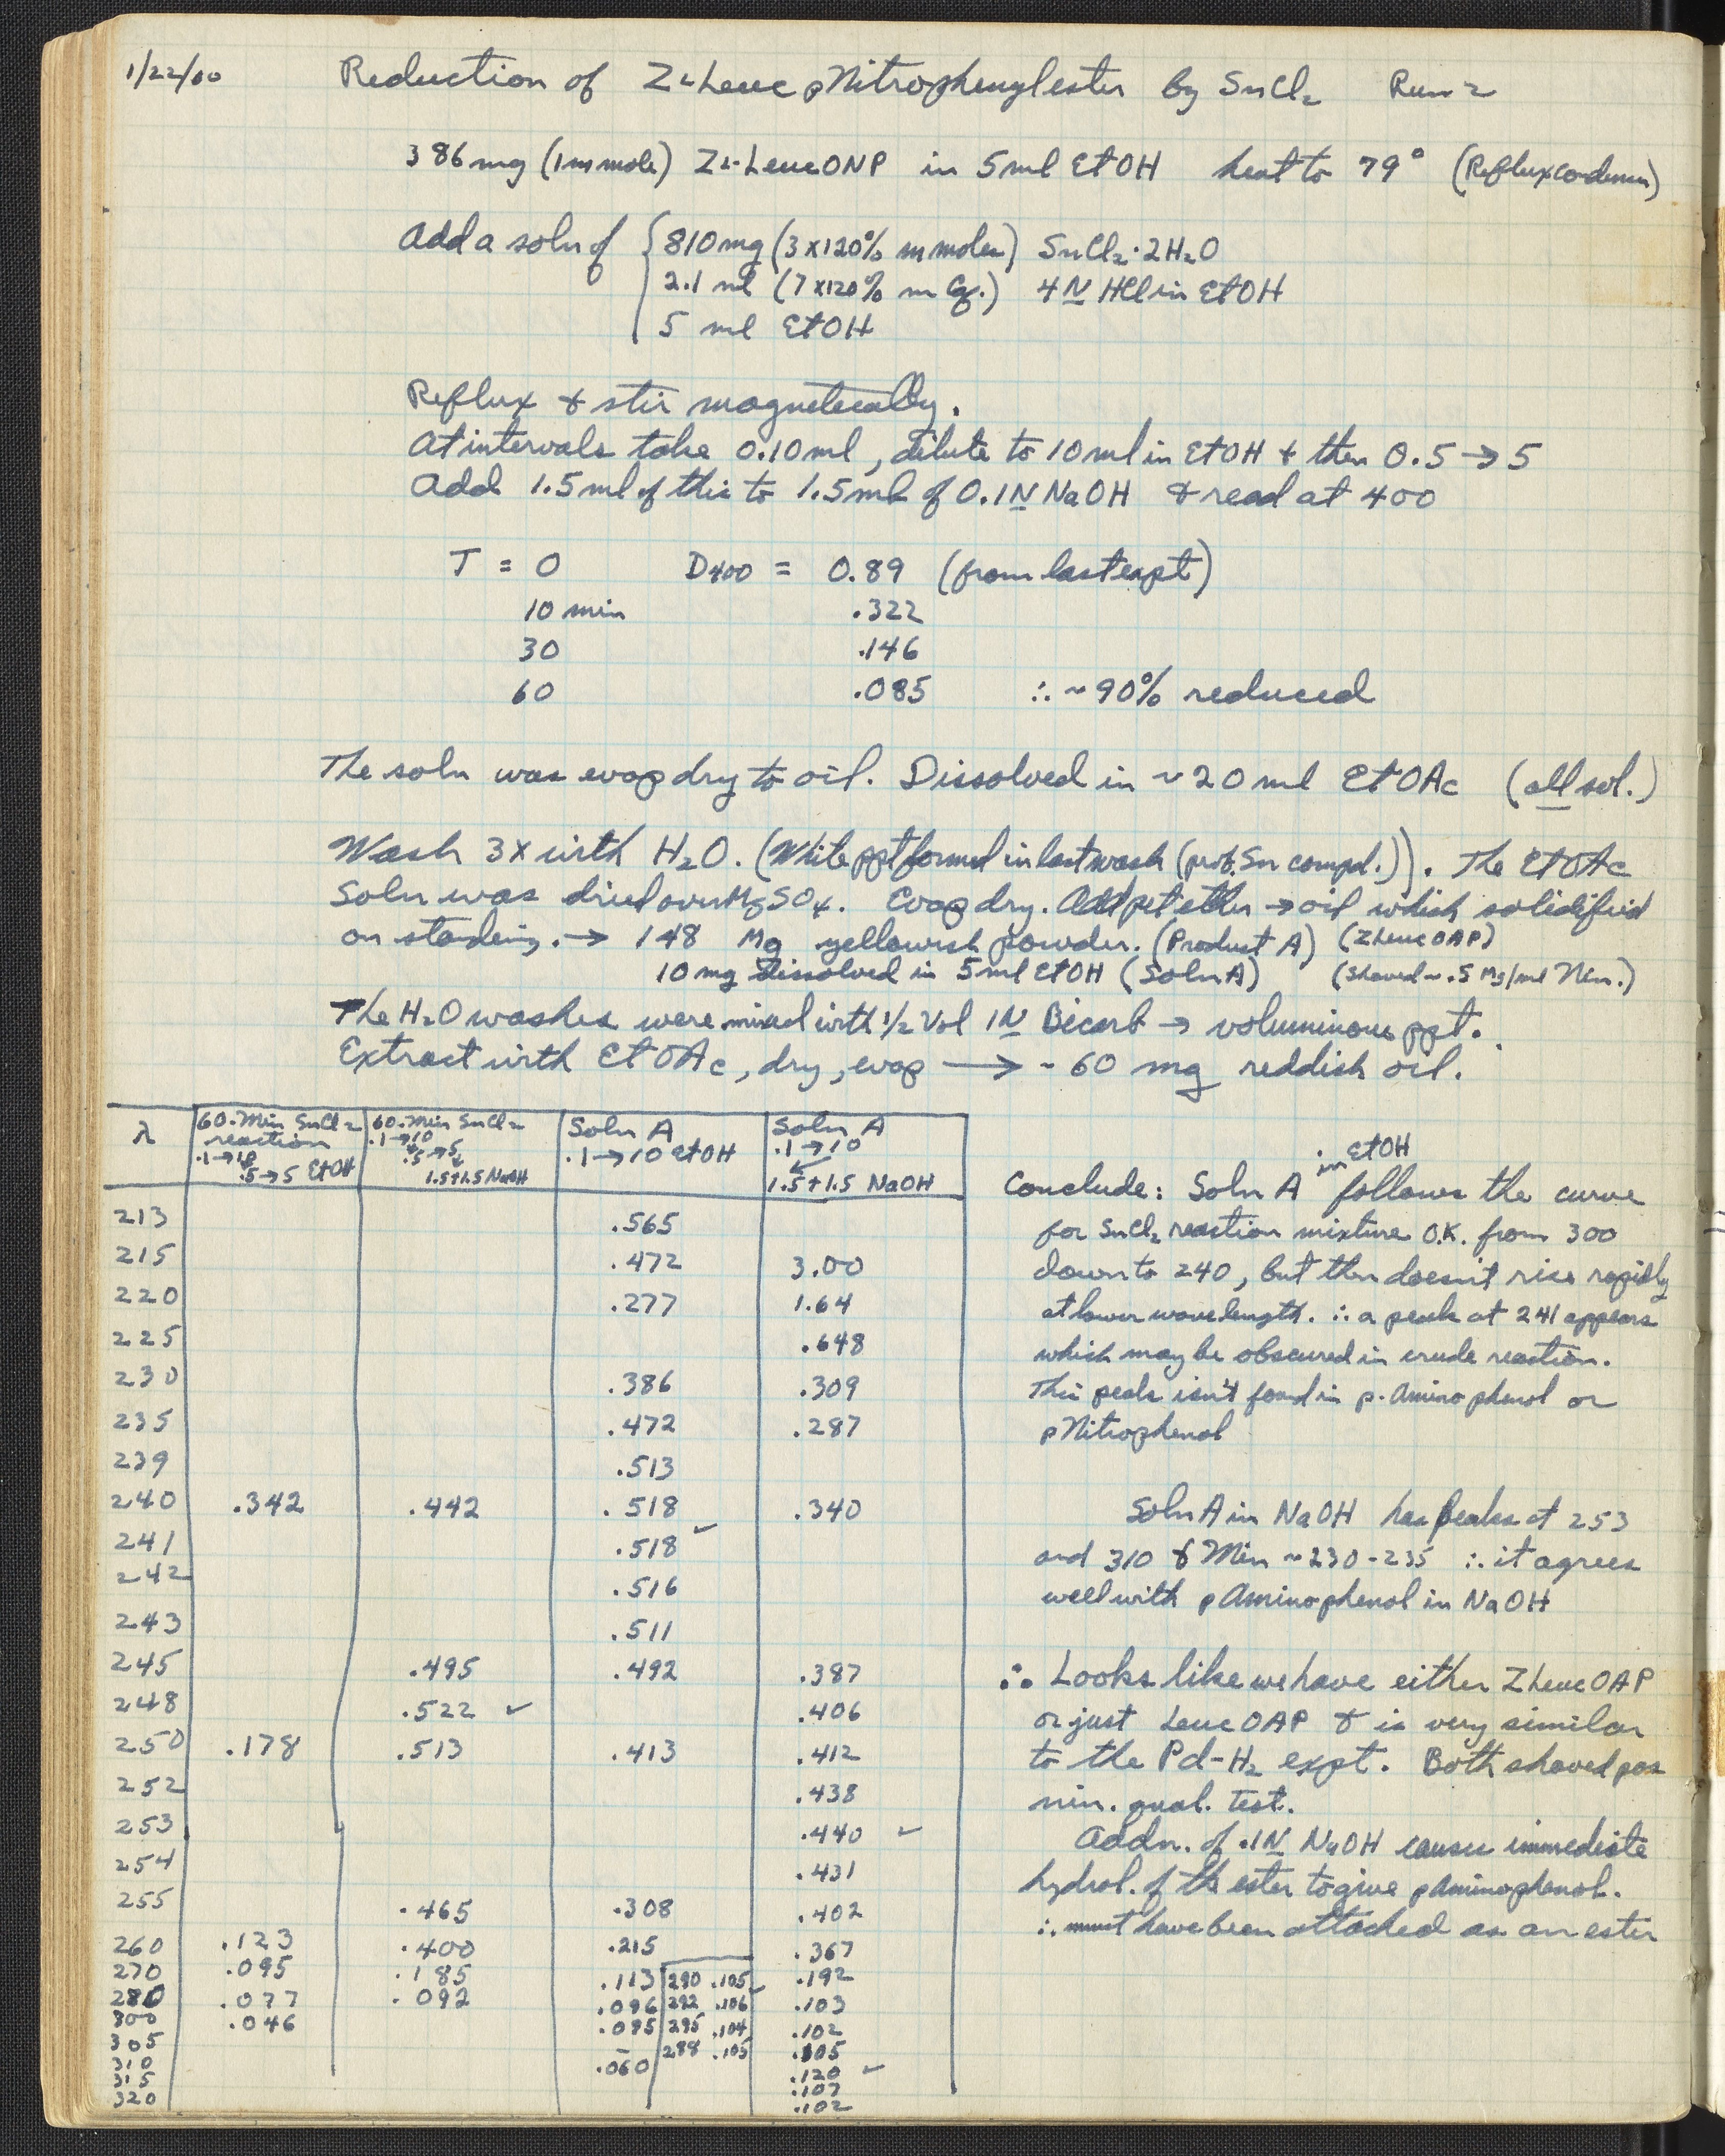 1/22/60 Reduction of Z-L-Leuc pNitrophenylester by SnCl₂ Run 2
386 mg (1 m mole) Z L-Leuc ONP in 5 ml EtOH heat to 79° (Reflux condenser)
Add a soln of { 810 mg (3 x 120% m moles) SnCl₂·2H₂O
2.1 ml (7 x 120% m Eq.) 4 N HCl in EtOH
5 ml EtOH
Reflux & stir magnetically.
At intervals take 0.10 ml, dilute to 10 ml in EtOH & then 0.5 → 5
Add 1.5 ml of this to 1.5 ml of 0.1 N NaOH & read at 400
T = 0 D400 = 0.89 (from last expt)
10 min .322
30 .146
60 .085 ∴ ~90% reduced
The soln was evap dry to oil. Dissolved in ~20 ml EtOAc (all sol.)
Wash 3x with H₂O. (White ppt formed in last wash (prob. Sn compd.)). The EtOAc
Soln was dried over MgSO₄. Evap dry. Add pet ether → oil which solidified
on standing. → 148 Mg yellowish powder. (Product A) (Z Leuc OAP)
10 mg dissolved in 5 ml EtOH (Soln A) (Showed ~ .5 Mg/ml Nin.)
The H₂O washes were mixed with 1/2 Vol 1N Bicarb → voluminous ppt.
Extract with EtOAc, dry, evap → ~60 mg reddish oil.
λ | 60-Min SnCl₂ reaction .1→10 .5→5 EtOH | 60-Min SnCl₂ .1→10 .5→5 1.5+1.5 NaOH | Soln A .1→10 EtOH | Soln A .1→10 1.5+1.5 NaOH
213 .565
215 .472 3.00
220 .277 1.64
225 .648
230 .386 .309
235 .472 .287
239 .513
240 .342 .442 .518 .340
241 .518 ✓
242 .516
243 .511
245 .495 .492 .387
248 .522 ✓ .406
250 .178 .513 .413 .412
252 .438
253 .440 ✓
254 .431
255 .465 .308 .402
260 .123 .400 .215 .367
270 .095 .185 .113 .192
280 .077 .092 .096 .103
300 .046 .095 .102
305 .105
310 .060 .120 ✓
315 .107
320 .102
290 .105
292 .106 ✓
295 .104
288 .105
Conclude: Soln A in EtOH follows the curve
for SnCl₂ reaction mixture O.K. from 300
down to 240, but then doesn't rise rapidly
at lower wavelength. ∴ a peak at 241 appears
which may be obscured in crude reaction.
This peak isn't found in p-Aminophenol or
pNitrophenol
Soln A in NaOH has peaks at 253
and 310 & Min ~230-235 ∴ it agrees
well with pAminophenol in NaOH
∴ Looks like we have either Z Leuc OAP
or just Leuc OAP & is very similar
to the Pd-H₂ expt. Both showed pos
nin. qual. test.
Addn. of .1N NaOH causes immediate
hydrol. of the ester to give pAminophenol.
∴ must have been attached as an ester